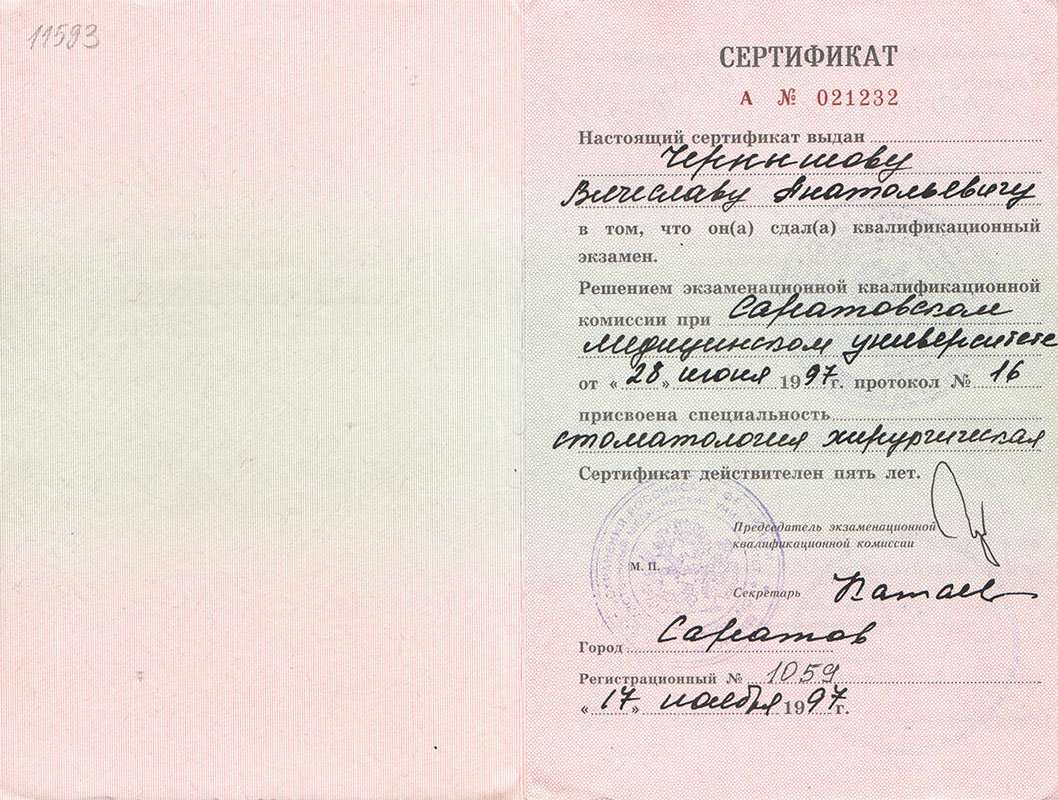 11593
СЕРТИФИКАТ
А № 021232
Настоящий сертификат выдан
Чернышову
Вячеславу Анатольевичу
в том, что он(а) сдал(а) квалификационный
экзамен.
Решением экзаменационной квалификационной
комиссии при Саратовском
медицинском университете
от «28» июня 1997г. протокол № 16
присвоена специальность
стоматология хирургическая
Сертификат действителен пять лет.
Председатель экзаменационной
квалификационной комиссии
М. П.
Секретарь
Город Саратов
Регистрационный № 1059
«17» ноября 1997г.